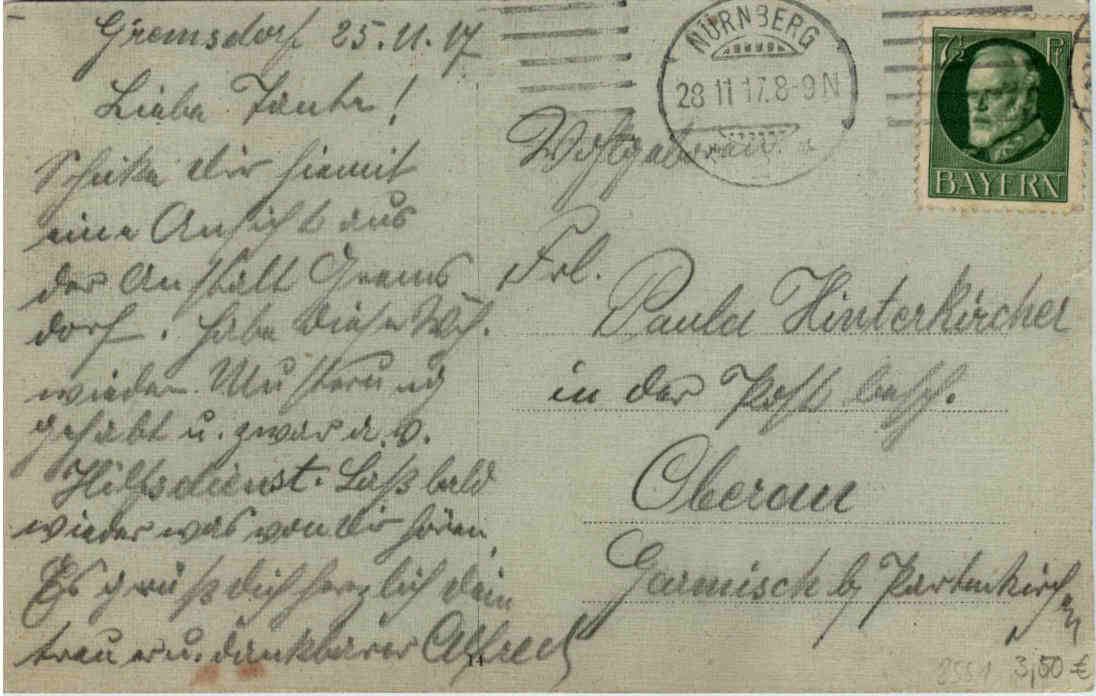 Gremsdorf 25.11.17
Liebe Tante!
Schicke dir hiemit
eine Ansicht aus
der Anstalt Grems
dorf. Habe diese Wch.
wieder Musterung
gehabt u. zwar a. v.
Hilfsdienst. Laß bald
wieder was von dir hören,
Es grüßt dich herzlich dein
treuer u. dankbarer Alfred
NÜRNBERG
28 11 17. 8-9 N
7½ Pf
BAYERN
Frl.
Paula Hinterkircher
in der Post besch.
Oberau
Garmisch b/ Partenkirchen
14
2551 3,50 €